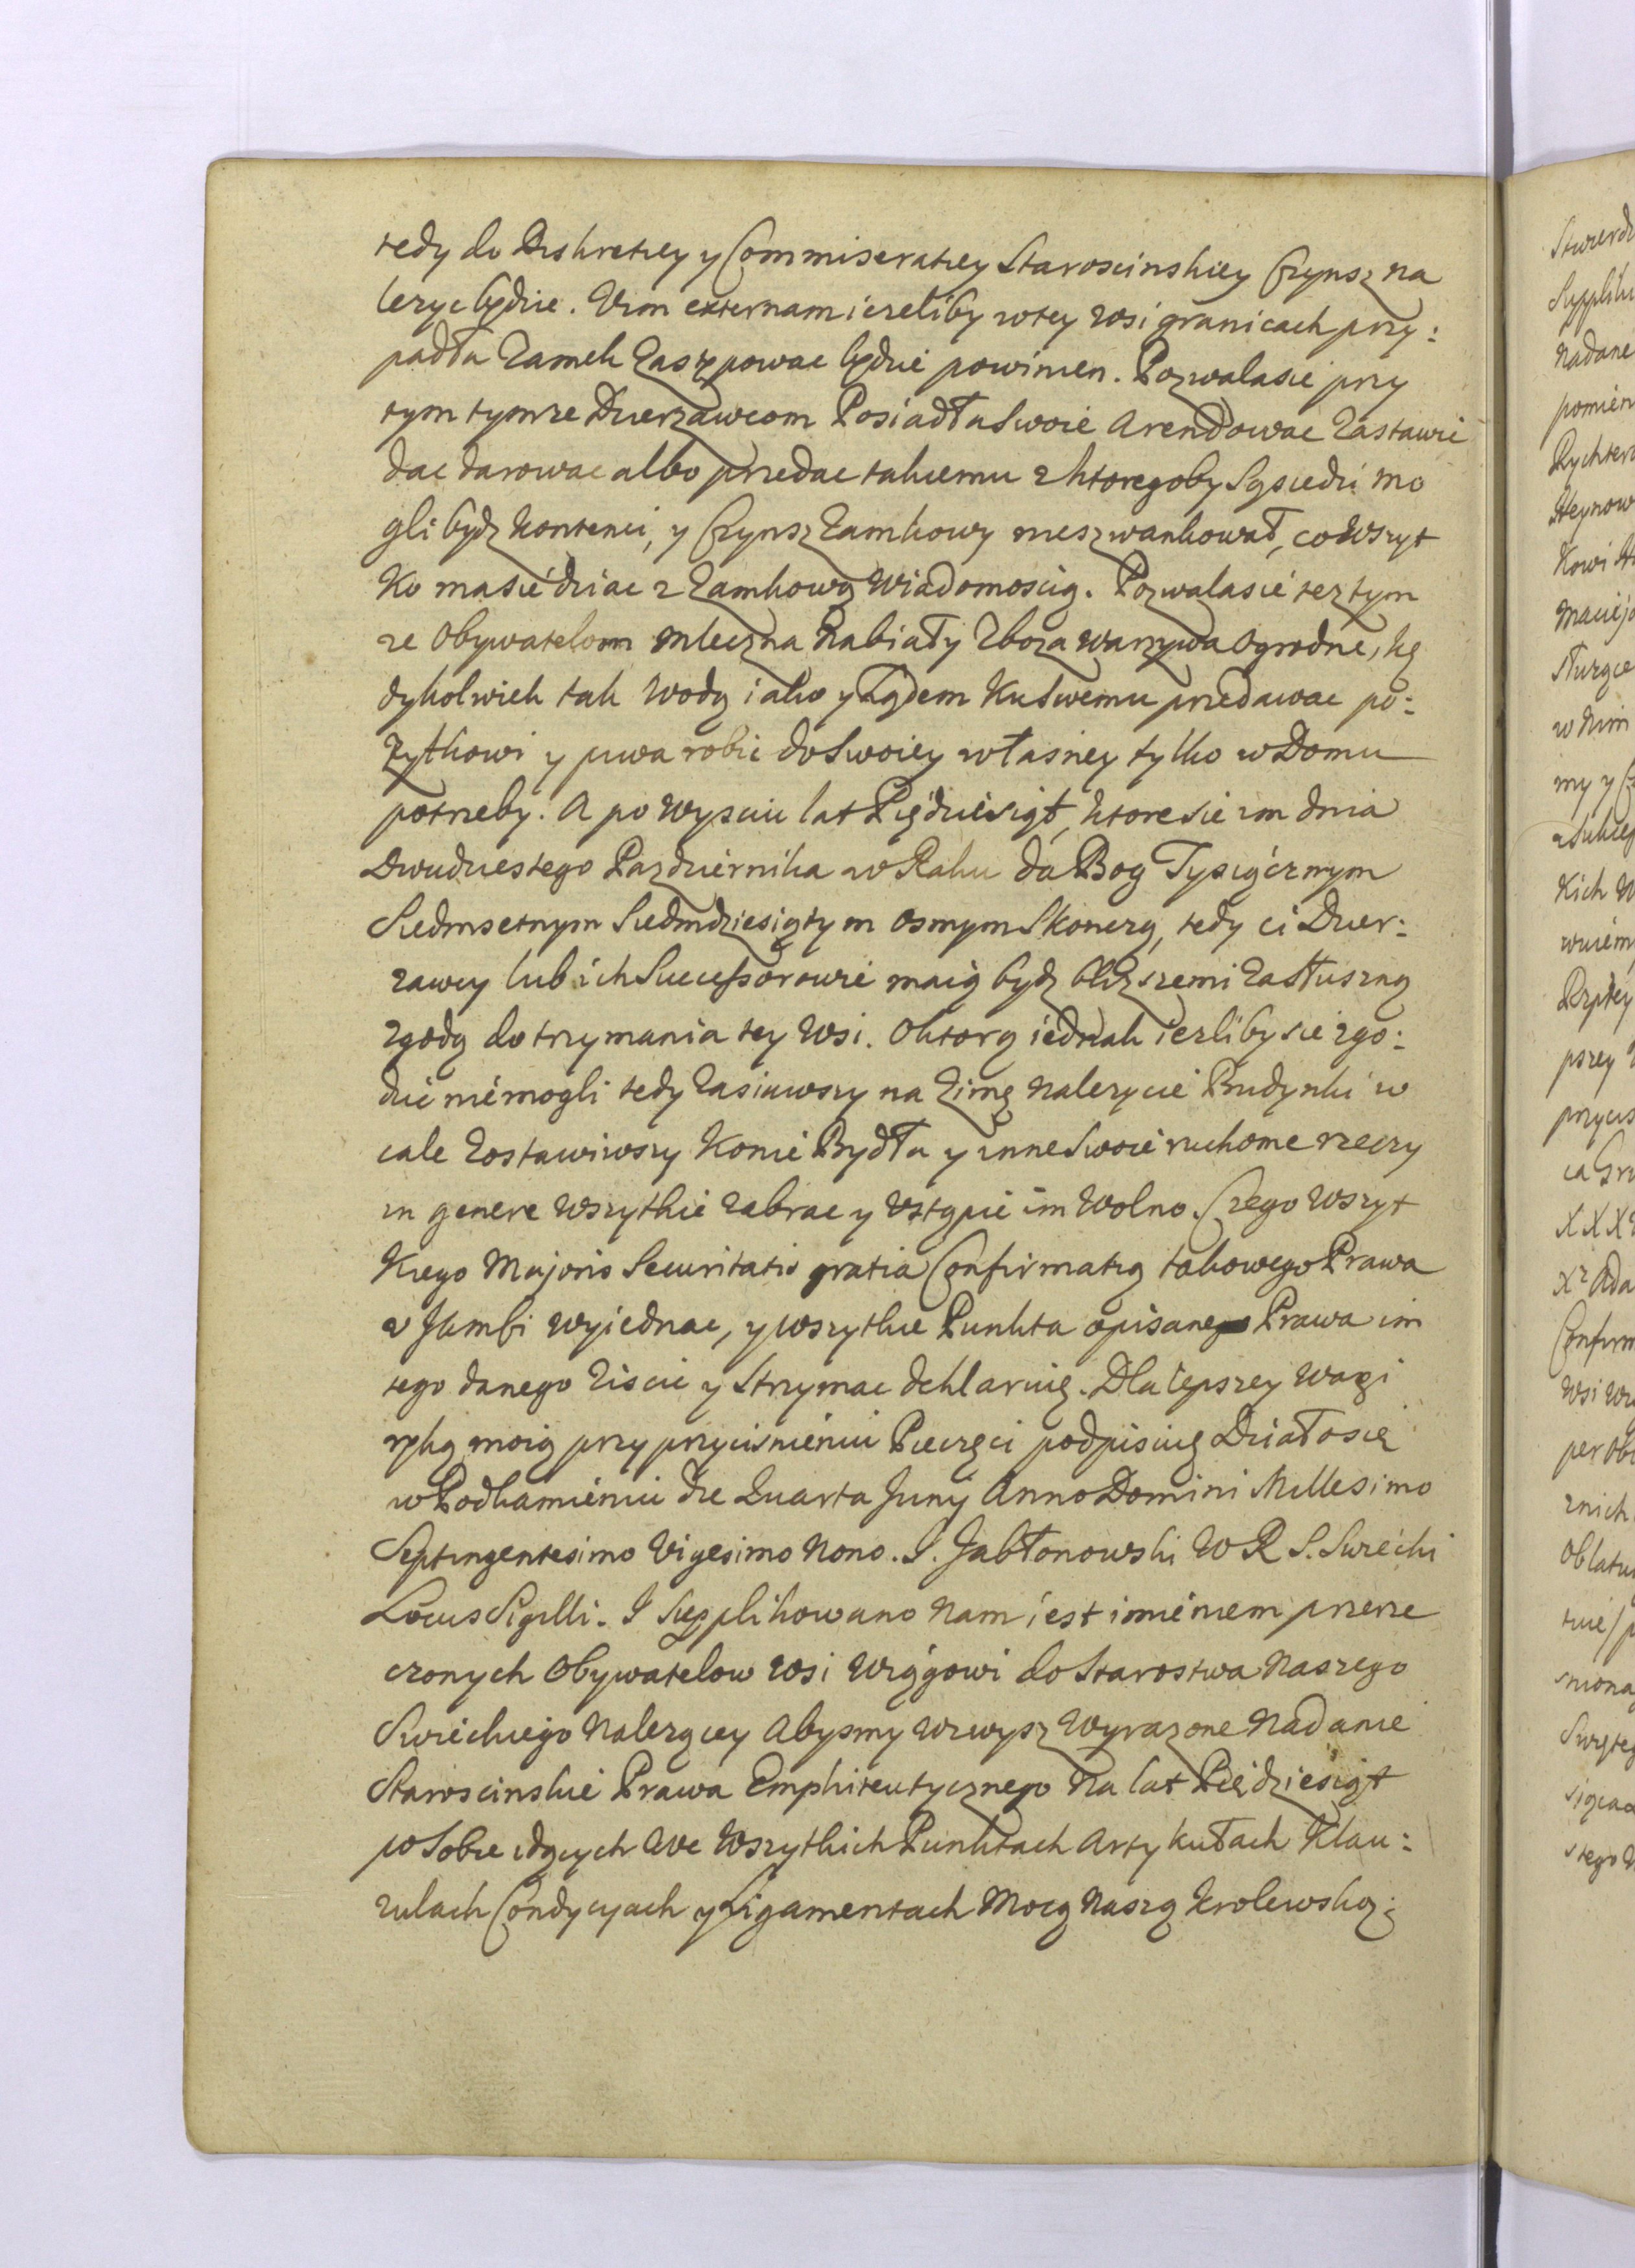 tedy do Diskretiey y Commiseratiey Staroscinskiey Czynsz na
lezyc będzie. Vim externam iezeliby wtey wsi granicach przy:
padła Zamek Zaszępowac będzie powinien. Pozwalasie przy
tym tymze Dzierzawcom Posiadła Swoie Arendowac Zastawic
dac darowac albo przedac takiemu z ktoregoby Sąsiedzi mo
gli bydz kontenci, y Czynsz Zamkowy nieszwankował, co wszyt
ko masie dziac z Zamkową Wiadomoscią. Pozwalasie tez tym
ze Obywatelom mleczna Nabiały Zboza Warzywa Ogrodne, kę
dykolwiek tak Wodą iako y Lądem Ku Swemu przedawac po:
zytkowi y piwa robic do Swoiey własney tylko w Domu
potrzeby. A po Wysciu lat Piędziesiąt, ktore sie im dnia
Dwudziestego Pazdziernika w Roku da Bog Tysiącznym
Siedmsetnym Siedmdziesiątym osmym Skonczą, tedy ci Dzier:
zawcy lub ich Successorowie maią bydz blizszemi Zasłuszną
zgodą do trzymania tey Wsi. Oktorą iednak iezliby sie zgo:
dzic niemogli tedy Zasiawszy na Zimę Nalezycie Budynki w
cale Zostawiwszy Konie Bydła y inne Swoie ruchome rzeczy
in genere Wszytkie Zabrac y Vstąpic im Wolno. Czego Wszyt
Kiego Majoris Securitatis gratia Confirmatią takowego Prawa
v Jkmsci Wyiednac, y Wszytkie Punkta opisanego Prawa im
tego danego Ziscic y Strzymac deklaruię. Dla lepszey Wagi
ręką moią przy przycisnieniu Pieczęci podpisuię Działosię
w Podkamieniu die Quarta Juny Anno Domini Millesimo
Septingentesimo Vigesimo Nono. S. Jabłonowski W R S. Swiecki
Locus Sigilli. I Supplikowano Nam iest imieniem przerze
czonych Obywatelow Wsi Wiągowi do Starostwa Naszego
Swieckiego Nalezącey Abysmy Wzwysz Wyrazone Nadanie
Staroscinskie Prawa Emphiteutycznego Na lat Piędziesiąt
po Sobie idących We Wszytkich Punktach Artykułach Klau:
zulach Condycyach y Ligamentach Mocą Naszą Krolewską: